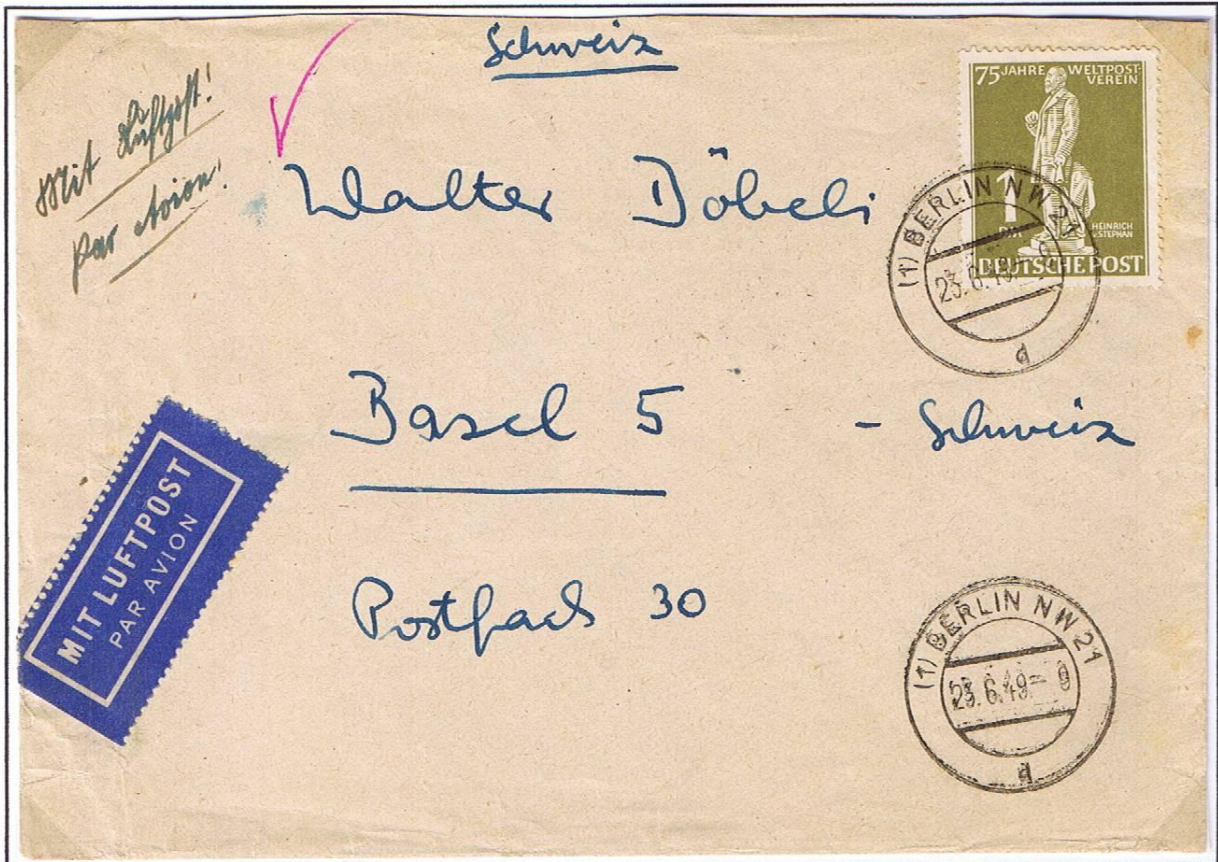 Schweiz
Mit Luftpost!
par Avion!
75 JAHRE WELTPOST-
VEREIN
1
DM
HEINRICH
v. STEPHAN
DEUTSCHE POST
(1) BERLIN NW 21
23.6.49
d
Walter Döbeli
Basel 5 - Schweiz
Postfach 30
MIT LUFTPOST
PAR AVION
(1) BERLIN NW 21
23.6.49